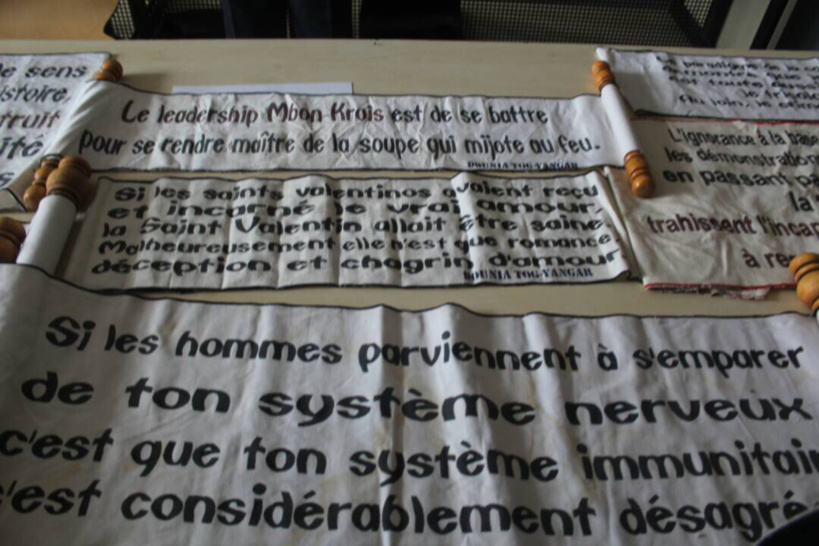 e sens
istoire,
truit
ité
Le leadership Mbon Krois est de se battre
pour se rendre maître de la soupe qui mijote au feu.
DOUNIA TOG-YANGAR
Si les saints valentinos avaient reçu
et incarné le vrai amour,
la Saint Valentin allait être saine.
Malheureusement elle n'est que romance,
déception et chagrin d'amour
DOUNIA TOG-YANGAR
L'ignorance à la base
les démonstration
en passant pa
la
trahissent l'incap
à re
Si les hommes parviennent à s'emparer
de ton système nerveux
c'est que ton système immunitair
'est considérablement désagré